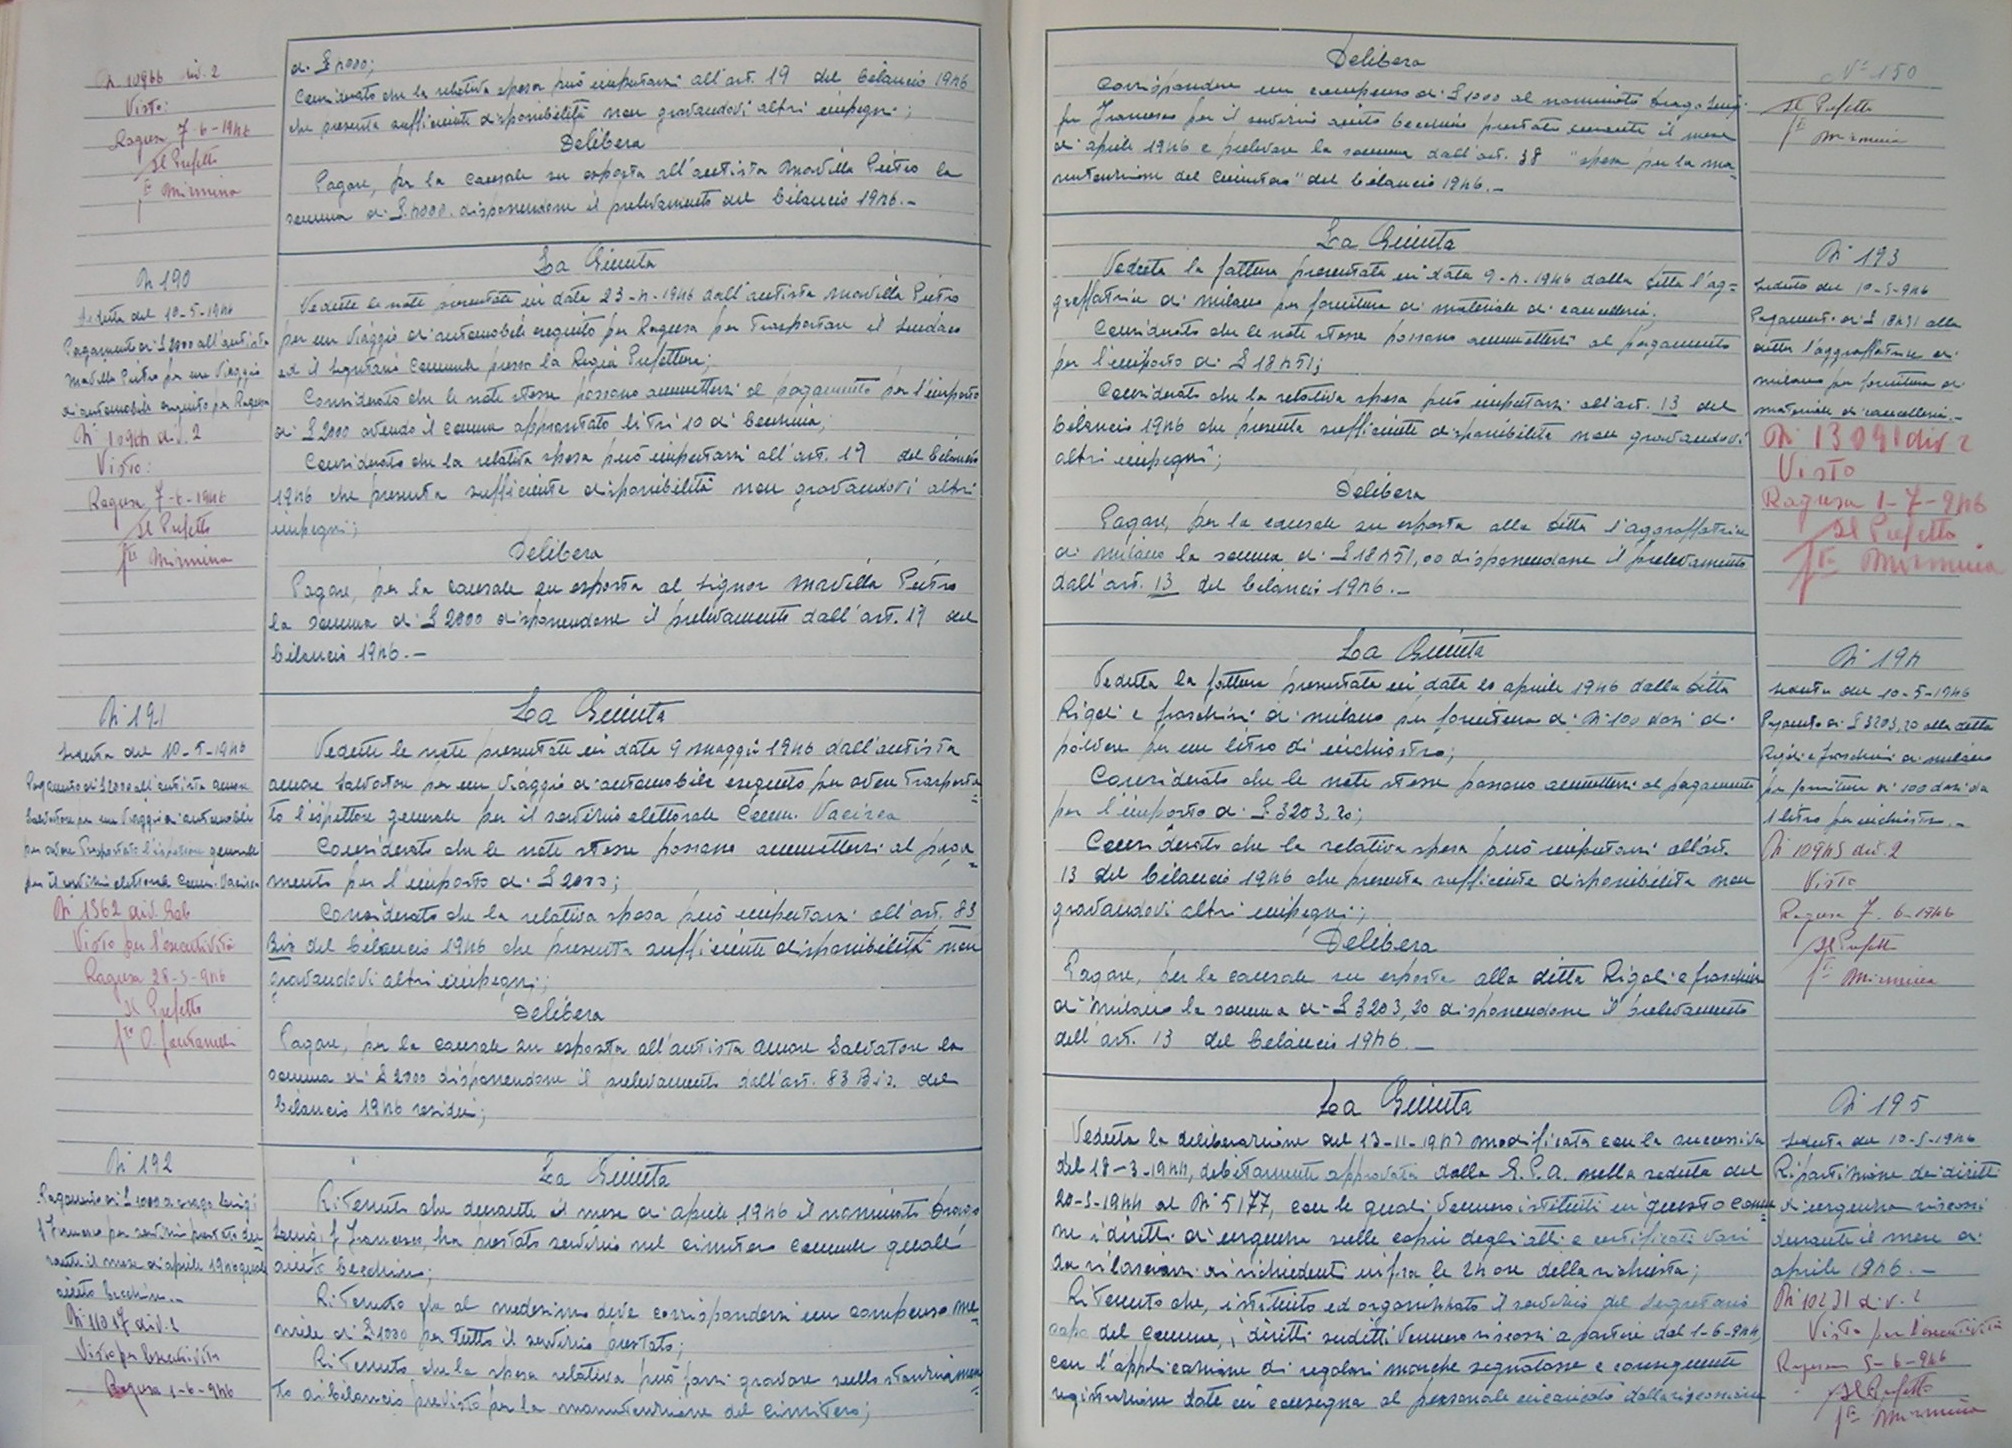 N. 10966 div. 2
Visto:
Ragusa 7-6-1946
Il Prefetto
Mirmina
di £
Considerato che la relativa spesa può imputarsi all'art. 19 del bilancio 1946
che presenta sufficiente disponibilità non gravandovi altri impegni;
Delibera
Pagare, per la causale su esposta all'autista Mavilla Pietro la
somma di £. disponendone il prelevamento del bilancio 1946.-
N 190
Seduta del 10-5-1946
Pagamento di £ 2000 all'autista
Mavilla Pietro per un viaggio
di automobile eseguito per Ragusa
div. 2
Visto:
Ragusa 7-6-1946
Il Prefetto
Mirmina
La Giunta
Vedute le note presentate in data 23-4-1946 dall'autista Mavilla Pietro
per un viaggio di automobile eseguito per Ragusa per trasportare il Sindaco
ed il Segretario Comunale presso la Regia Prefettura;
Considerato che le note stesse possano ammettersi al pagamento per l'importo
di £ 2000 avendo il Comune apprestato litri 10 di benzina;
Considerato che la relativa spesa può imputarsi all'art. 19 del bilancio
1946 che presenta sufficiente disponibilità non gravandovi altri
impegni;
Delibera
Pagare, per la causale su esposta al signor Mavilla Pietro
la somma di £ 2000 disponendone il prelevamento dall'art. 19 del
bilancio 1946.-
N 191
Seduta del 10-5-1946
Pagamento di £ 2000 all'autista Amore
Salvatore per un viaggio di automobile
per avere trasportato l'ispettore generale
per il servizio elettorale Comm. Vacirca
N 1362 div. Gab
Visto per l'esecutività
Ragusa 28-5-946
Il Prefetto
La Giunta
Vedute le note presentate in data 9 maggio 1946 dall'autista
Amore Salvatore per un viaggio di automobile eseguito per avere trasporta=
to l'ispettore generale per il servizio elettorale Comm. Vacirca
Considerato che le note stesse possano ammettersi al paga=
mento per l'importo di £ 2000;
Considerato che la relativa spesa può imputarsi all'art. 83
Bis del bilancio 1946 che presenta sufficiente disponibilità non
gravandovi altri impegni;
Delibera
Pagare, per la causale su esposta all'autista Amore Salvatore la
somma di £ 2000 disponendone il prelevamento dall'art. 83 Bis. del
bilancio 1946 residui;
N 192
Pagamento di £ 1000 a Drago Luigi
f. Francesco per servizio prestato du=
rante il mese di aprile 1946 quale
aiuto becchino.-
N 11017 div. 2
Visto per l'esecutività
Ragusa 1-6-946
La Giunta
Ritenuto che durante il mese di aprile 1946 il nominato Drago
Luigi f Francesco, ha prestato servizio nel cimitero comunale quale
aiuto becchino;
Ritenuto che al medesimo deve corrispondersi un compenso me=
nsile di £ 1000 per tutto il servizio prestato;
Ritenuto che la spesa relativa può farsi gravare sullo stanziamen=
to di bilancio previsto per la manutenzione del cimitero;
Delibera
Corrispondere un compenso di £ 1000 al nominato Drago Luigi
fu Francesco per il servizio aiuto becchino prestato durante il mese
di aprile 1946 e prelevare la somma dall'art. 38 "spesa per la ma=
nutenzione del Cimitero" del bilancio 1946.-
N° 150
Il Prefetto
Mirmina
La Giunta
Veduta la fattura presentata in data 9-4-1946 dalla ditta l'ag=
graffatrice di Milano per fornitura di materiale di cancelleria;
Considerato che le note stesse possano ammettersi al pagamento
per l'importo di £ 18451;
Considerato che la relativa spesa può imputarsi all'art. 13 del
bilancio 1946 che presenta sufficiente disponibilità non gravandovi
altri impegni;
Delibera
Pagare, per la causale su esposta alla ditta l'aggraffatrice
di Milano la somma di £ 18451,00 disponendone il prelevamento
dall'art. 13 del bilancio 1946.-
N 193
Seduta del 10-5-946
Pagamento di £ 18451 alla
ditta l'aggraffatrice di
Milano per fornitura di
materiale di cancelleria.-
N 13091 div 2
Visto
Ragusa 1-7-946
Il Prefetto
Mirmina
La Giunta
Veduta la fattura presentata in data 20 aprile 1946 dalla ditta
Rigoli e Fraschini di Milano per fornitura di N 100 dosi di
polvere per un litro di inchiostro;
Considerato che le note stesse possano ammettersi al pagamento
per l'importo di £. 3203,20;
Considerato che la relativa spesa può imputarsi all'art.
13 del bilancio 1946 che presenta sufficiente disponibilità non
gravandovi altri impegni;
Delibera
Pagare, per la causale su esposta alla ditta Rigoli e Fraschini
di Milano la somma di £ 3203,20 disponendone il prelevamento
dall'art. 13 del bilancio 1946.-
N 194
Seduta del 10-5-1946
Pagamento di £ 3203,20 alla ditta
Rigoli e Fraschini di Milano
per fornitura di 100 dosi da
1 litro per inchiostro.-
N 10945 div. 2
Visto
Ragusa 7-6-1946
Il Prefetto
Mirmina
La Giunta
Veduta la deliberazione del 13-11-1943 modificata con la successiva
del 18-3-1944, debitamente approvata dalla G.P.A. nella seduta del
20-5-1944 al N 5177, con le quali vennero istituiti in questo comu=
ne i diritti di urgenza sulle copie degli atti e certificati vari
da rilasciarsi ai richiedenti infra le 24 ore della richiesta;
Ritenuto che, istituito ed organizzato il servizio dal Segretario
capo del Comune, i diritti sudetti vennero riscossi a partire dal 1-6-944,
con l'applicazione di regolari marche segnatasse e conseguente
registrazione date in consegna al personale incaricato dalla riscossione
N 195
Seduta del 10-5-1946
Ripartizione dei diritti
di urgenza riscossi
durante il mese di
aprile 1946.-
N 10231 div. 2
Visto per l'esecutività
Ragusa 5-6-946
Il Prefetto
Mirmina